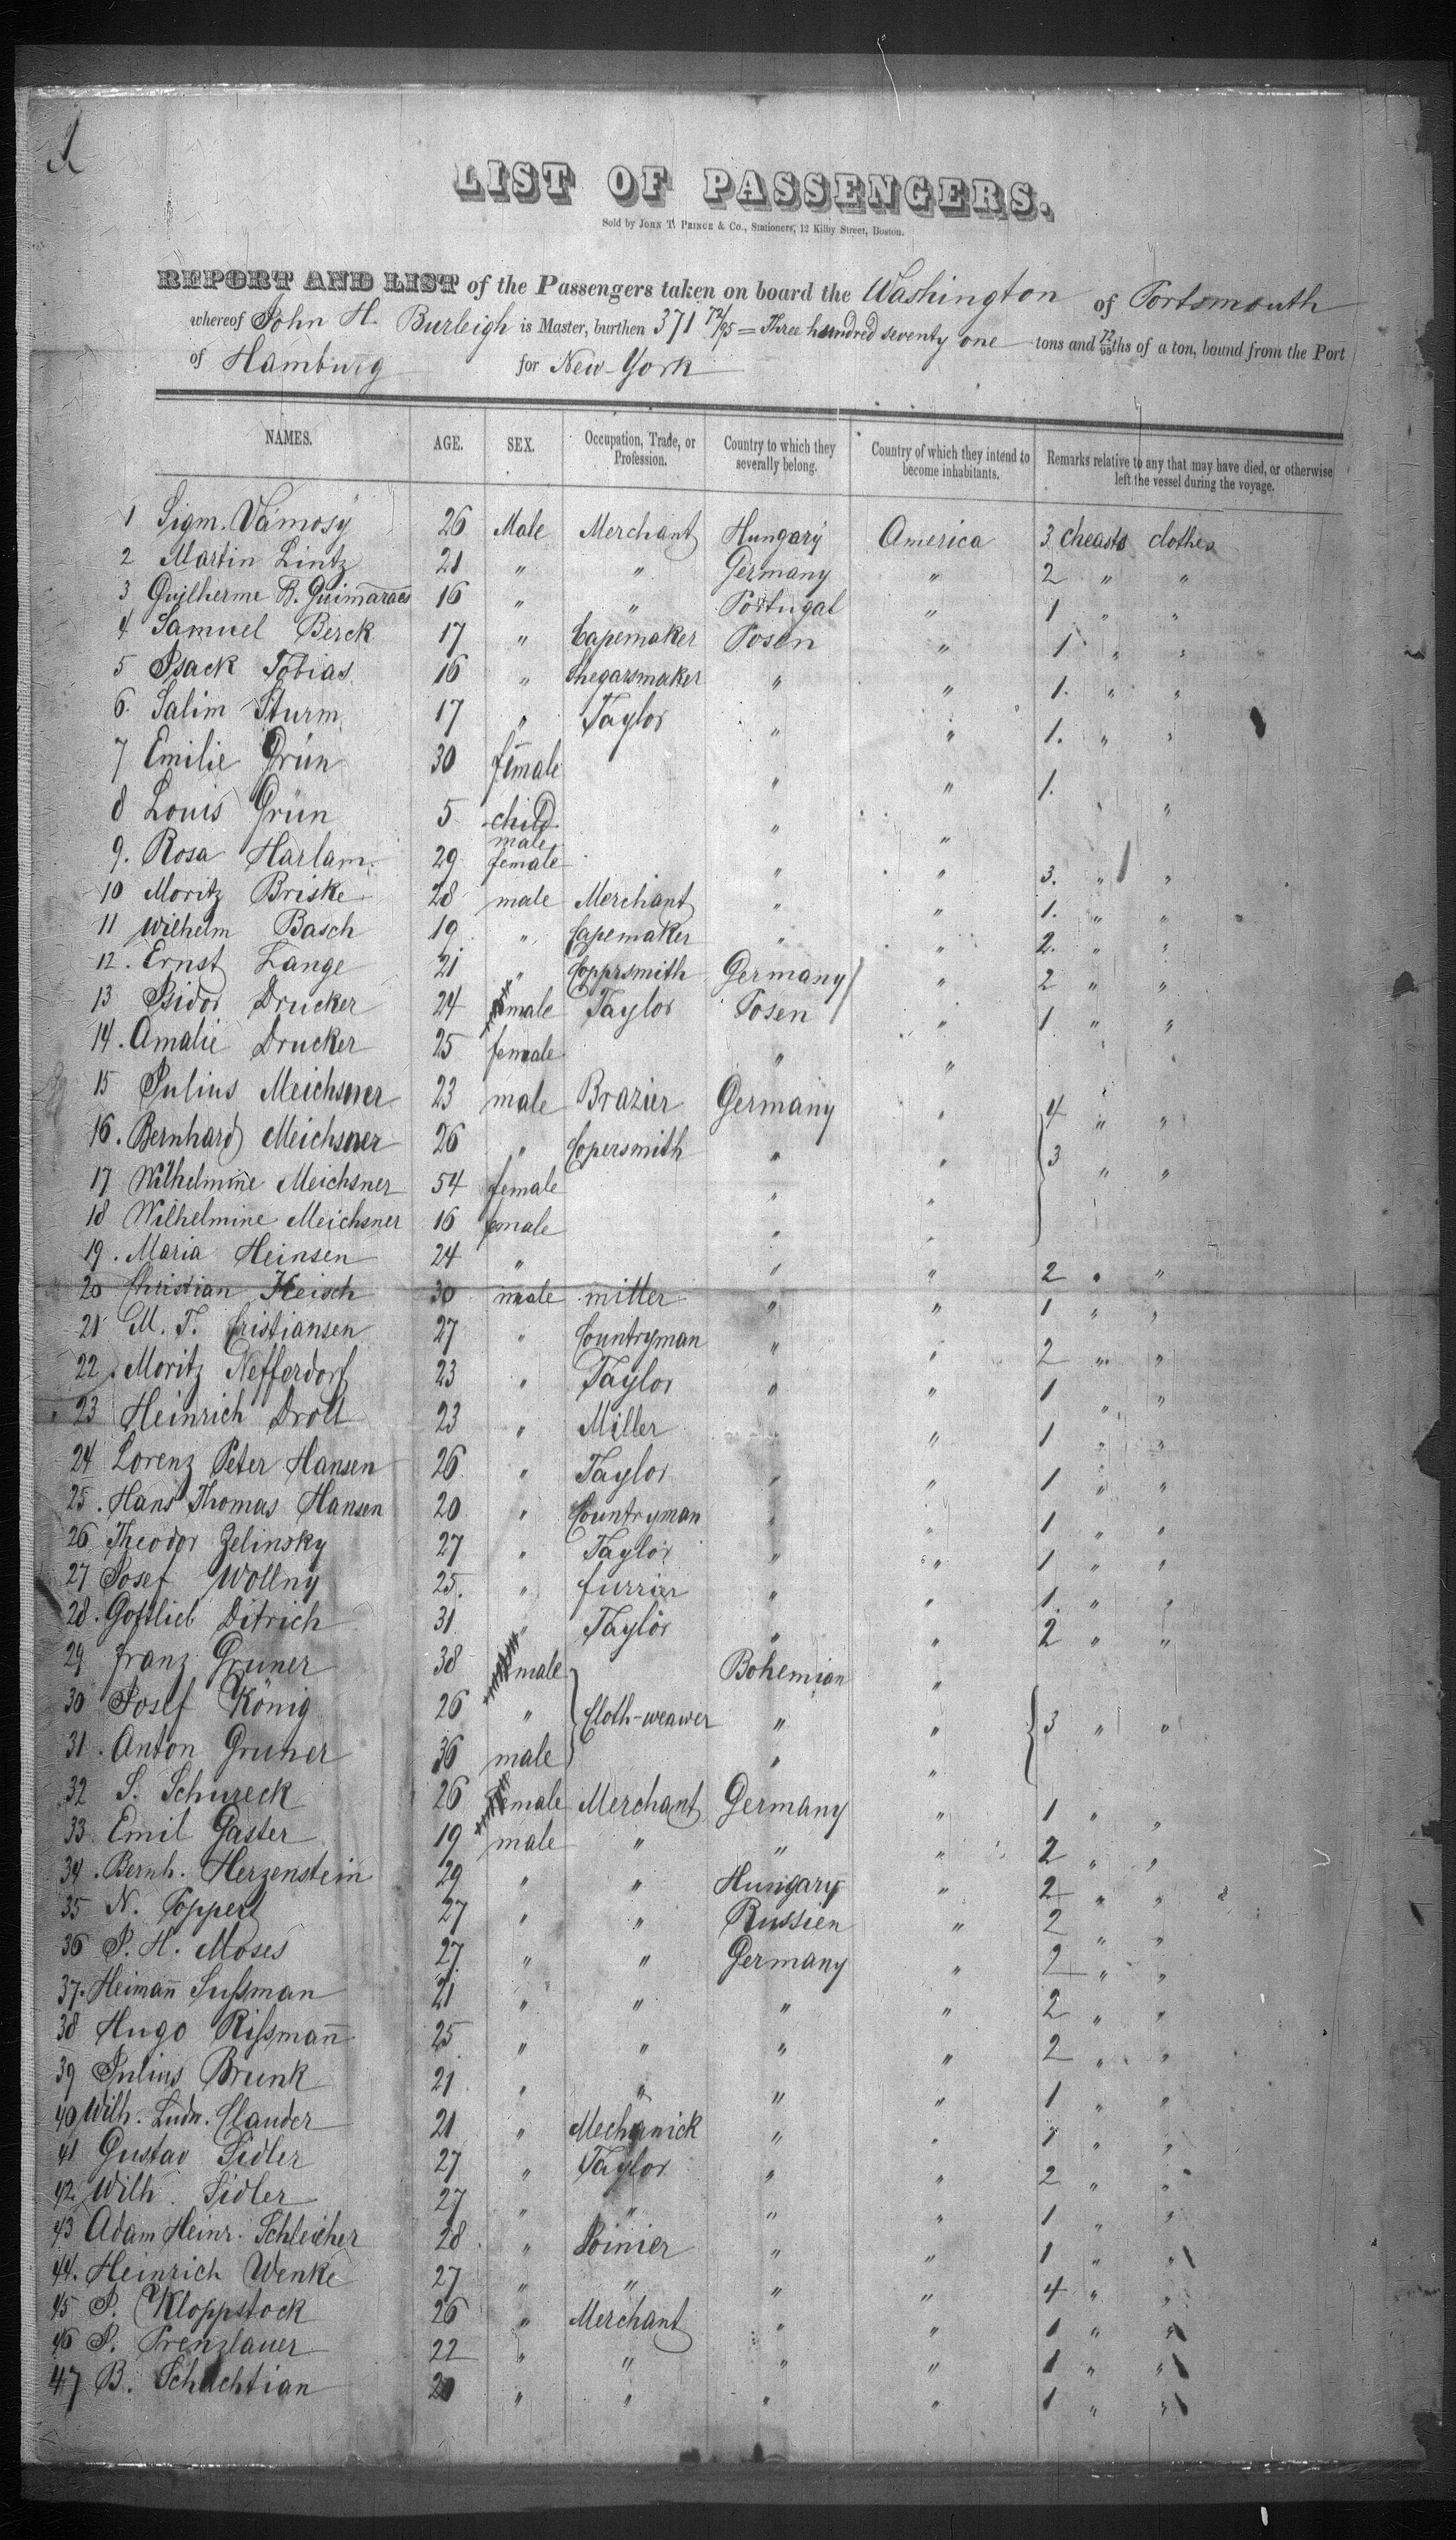 1
LIST OF PASSENGERS.
Sold by JOHN T. PRINCE & Co., Stationers, 12 Kilby Street, Boston.
REPORT AND LIST of the Passengers taken on board the Washington of Portsmouth
whereof John H. Burleigh is Master, burthen 371 72/95 = Three hundred seventy one tons and 72/95ths of a ton, bound from the Port
of Hamburg for New-York
NAMES. AGE. SEX. Occupation, Trade, or Profession. Country to which they severally belong. Country of which they intend to become inhabitants. Remarks relative to any that may have died, or otherwise left the vessel during the voyage.
1 Sigm. Vámosy 26 Male Merchant Hungary America 3 cheasts clothes
2 Martin Lintz 21 " " Germany " 2 " "
3 Guilherme B. Guimaraes 16 " " Portugal " 1 " "
4 Samuel Berck 17 " Capemaker Posen " 1 " "
5 Isack Tobias 16 " Shegarsmaker " " 1. " "
6. Salim Sturm 17 " Taylor " " 1. " "
7 Emilie Grün 30 female " " 1. " "
8 Louis Grün 5 child male " "
9. Rosa Harlam. 29 female " " 3. " "
10 Moritz Briske 28 male Merchant " " 1. " "
11 Wilhelm Basch 19 " Capemaker " " 2. " "
12. Ernst Lange 21 " Copprsmith Germany " 2 " "
13 Isidor Drucker 24 male Taylor Posen " 1 " "
14. Amalie Drucker 25 female " "
15 Julius Meichsner 23 male Brazier Germany " 4 " "
16. Bernhard Meichsner 26 " Copersmith " " 3 " "
17 Wilhelmine Meichsner 54 female " "
18 Wilhelmine Meichsner 16 female " "
19. Maria Heinsen 24 " " " 2 " "
20 Christian Heisch 30 male mitter " " 1 " "
21 M. T. Cristiansen 27 " Countryman " " 2 " "
22. Moritz Nefferdorf 23 " Taylor " " 1 " "
23 Heinrich Droll 23 " Miller " 1 " "
24 Lorenz Peter Hansen 26 " Taylor " " 1 " "
25. Hans Thomas Hansen 20 " Countryman " " 1 " "
26 Theodor Zelinsky 27 " Taylor " " 1 " "
27 Josef Wollny 25. " furrier " " 1. " "
28. Gottlieb Ditrich 31 " Taylor " " 2 " "
29 franz Gruner 38 male Bohemian "
30 Josef König 26 " Cloth-weawer " " 3 " "
31. Anton Gruner 36 male " "
32 S. Schureck 26 male Merchant Germany " 1 " "
33 Emil Gaster 19 male " " " 2 " "
34. Bernh. Herzenstein 29 " " Hungary " 2 " "
35 N. Poppert 27 " " Russien " 2 " "
36 J. H. Moses 27. " " Germany " 2 " "
37. Heimañ Sussman 21 " " " " 2 " "
38 Hugo Rissmañ 25 " " " " 2 " "
39 Julius Brunk 21 " " " " 1 " "
40 Wilh. Ludw. Clauder 21 " Mechanick " " 1 " "
41 Gustav Sidler 27 " Taylor " " 2 " "
42 Wilh. Sidler 27 " " " " 1 " "
43 Adam Heinr. Schleicher 28 " Joinier " " 1 " "
44. Heinrich Wenke 27 " " " " 4 " "
45 J. Kloppstock 26 " Merchant " " 1 " "
46 J. Prenzlauer 22 " " " " 1 " "
47 B. Schachtian 20 " " " " 1 " "